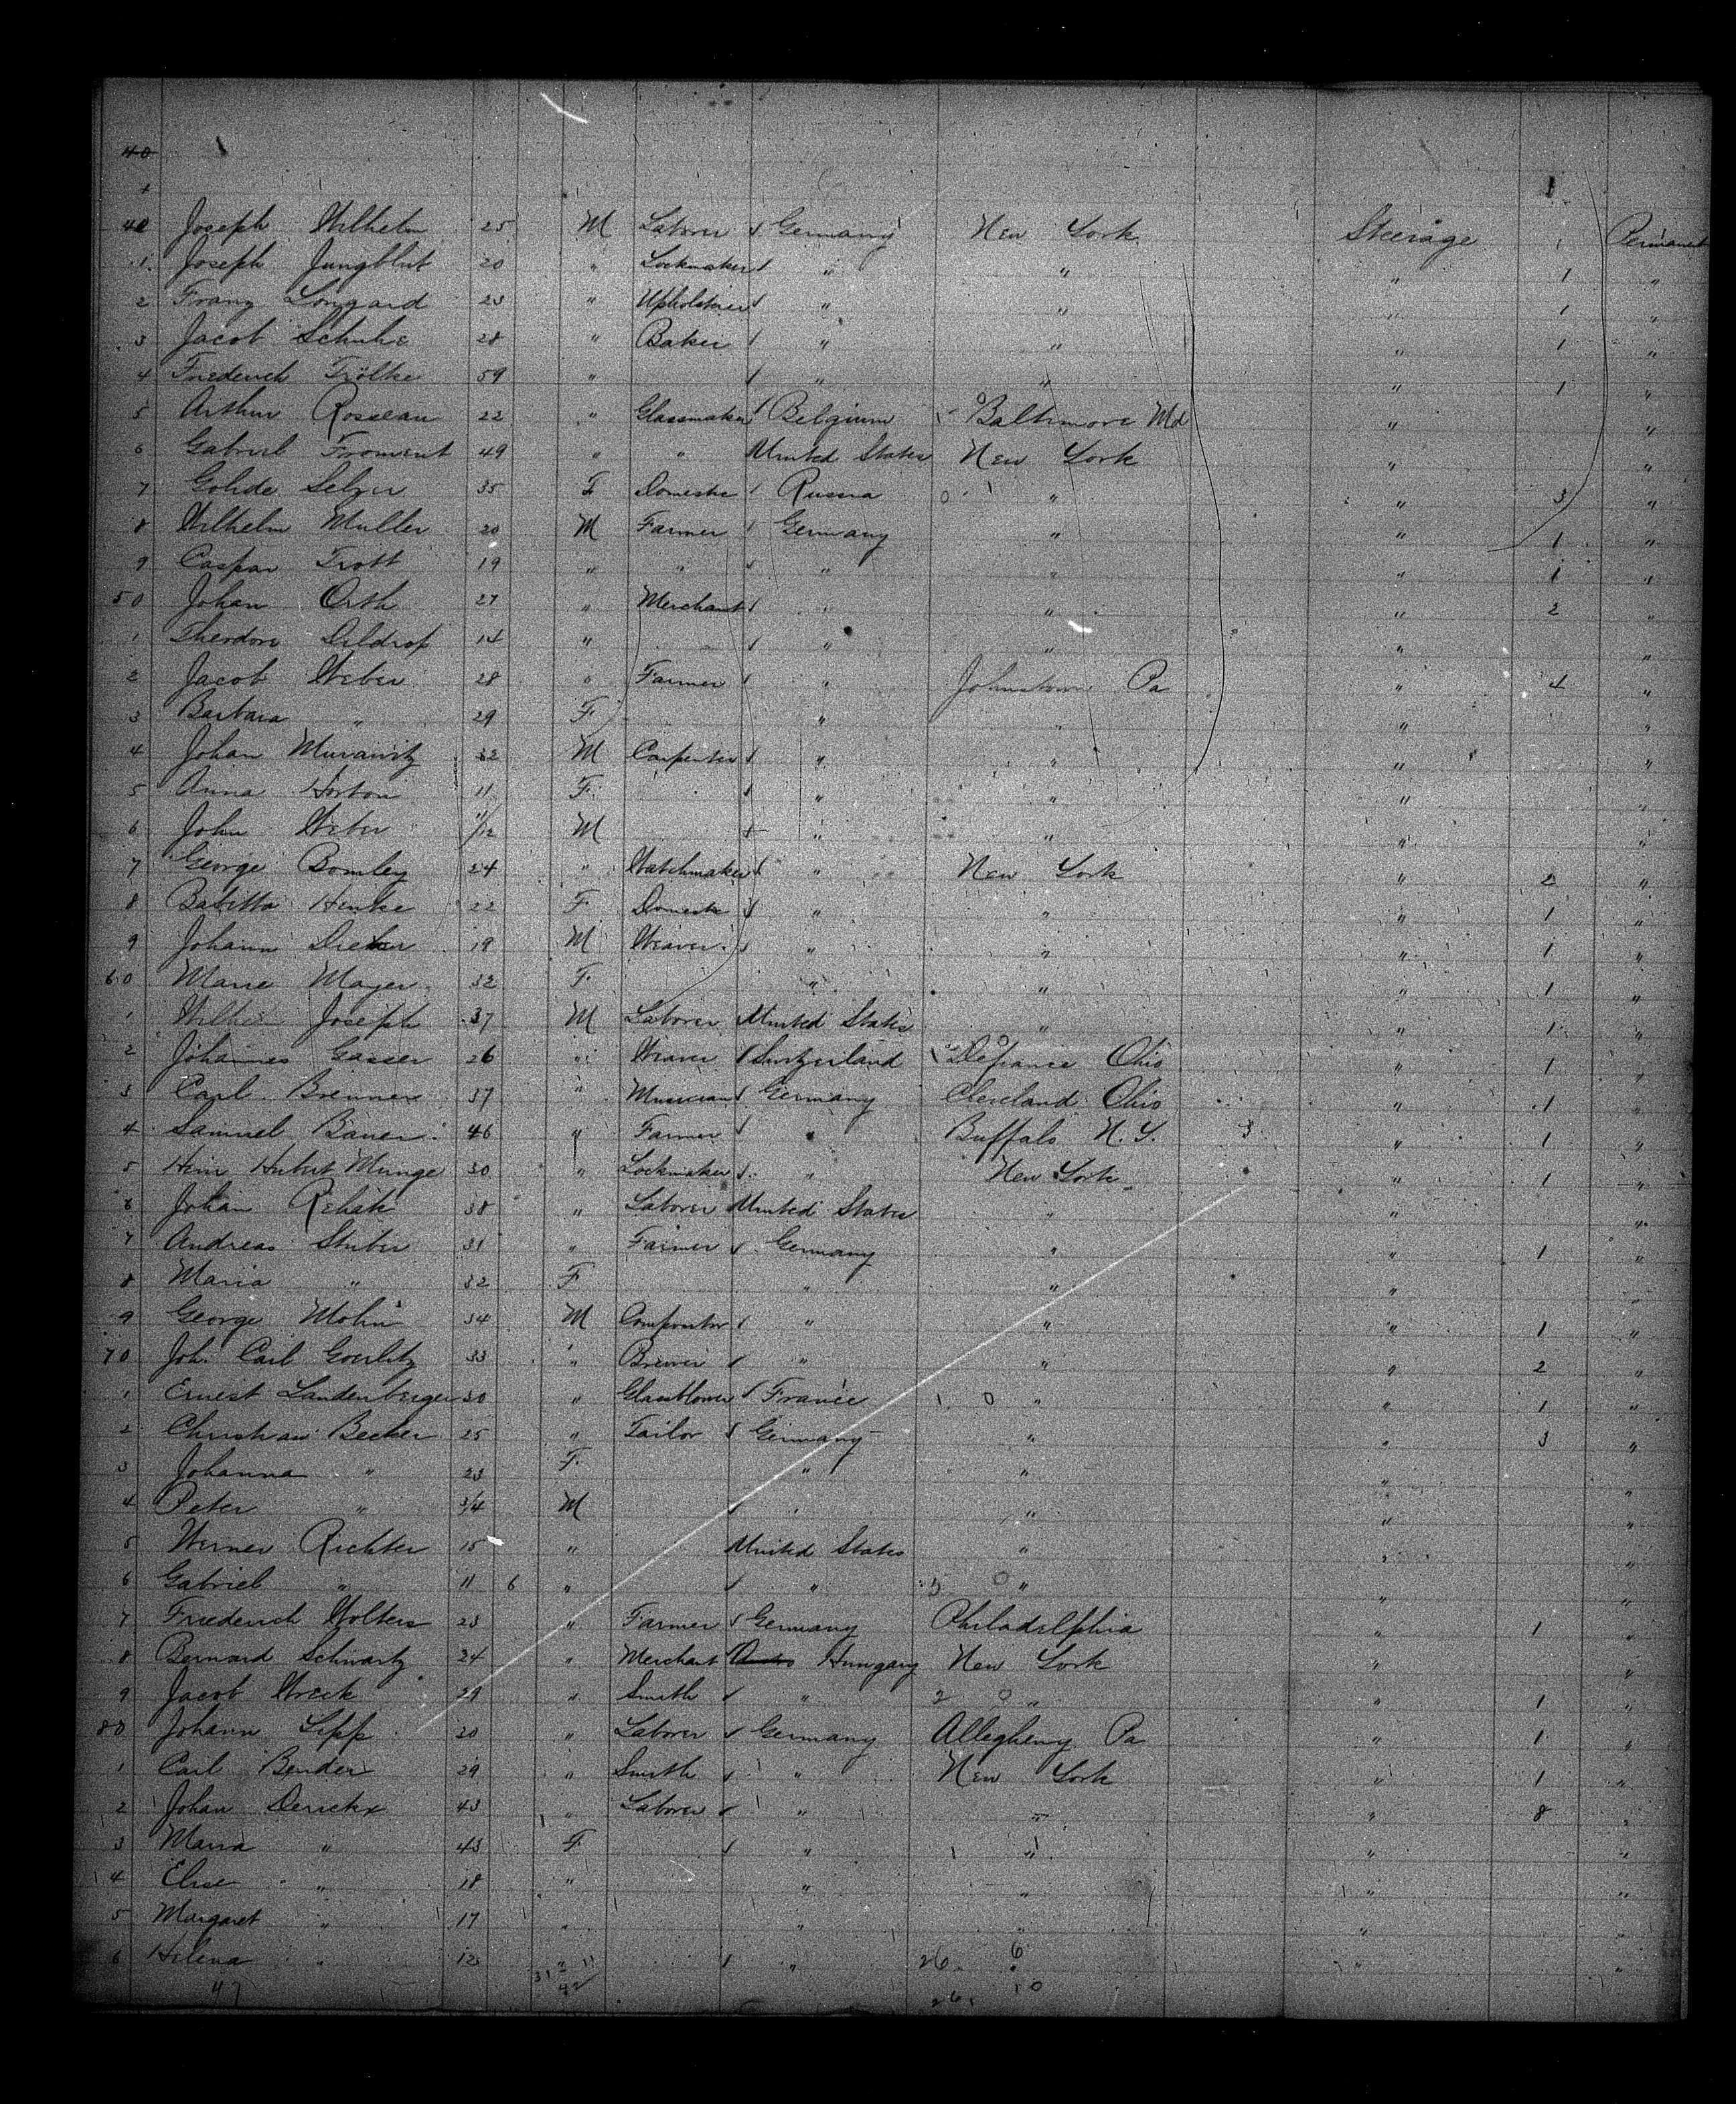 40
40 Joseph Wilhelm 25 M Laborer Germany New York Steerage 1 Permanent
1 Joseph Jungblut 20 " Lockmaker " " " 1 "
2 Franz Longard 23 " Upholsterer " " " 1 "
3 Jacob Schuhe 28 " Baker " " " 1 "
4 Frederich Trölke 59 " " " " 1 "
5 Arthur Rosseau 22 " Glassmaker Belgium Baltimore Md " "
6 Gabriel Froment 49 " " United States New York " "
7 Golide Selzer 35 F Domestic Russia " " 3 "
8 Wilhelm Muller 20 M Farmer Germany " " 1 "
9 Caspar Trott 19 " " " " " 1 "
50 Johan Orth 27 " Merchant " " " 2 "
1 Theodore Dildrop 14 " " " " "
2 Jacob Weber 28 " Farmer " Johnstown Pa " 4 "
3 Barbara " 29 F " " " "
4 Johan Murawitz 32 M Carpenter " " " "
5 Anna Horton 11 F " " " "
6 John Weber 11/12 M " " " "
7 George Bomley 24 " Watchmaker " New York " 2 "
8 Babitta Henke 22 F Domestic " " " 1 "
9 Johann Dreher 19 M Weaver " " " 1 "
60 Marie Mayer 32 F " " " 1 "
1 Joseph 37 M Laborer United States " " 1 "
2 Johannes Gasser 26 " Weaver Switzerland Defiance Ohio " 1 "
3 Carl Brenner 37 " Musician Germany Cleveland Ohio " 1 "
4 Samuel Bauer 46 " Farmer " Buffalo N.Y. 3 " 1 "
5 Hein Hubert Munge 30 " Lockmaker " New York " 1 "
6 Johan Rehak 38 " Laborer United States " " "
7 Andreas Stuber 31 " Farmer Germany " " 1 "
8 Maria " 32 F " " " "
9 George Mohn 34 M Compositor " " " 1 "
70 Joh. Carl Goerlitz 33 " Brewer " " " 2 "
1 Ernest Landenberger 30 " Glassblower France 1 0 " " 1 "
2 Christian Becker 25 " Tailor Germany " " 3 "
3 Johanna " 23 F " " " "
4 Peter " 3/4 M " " " "
5 Werner Richter 15 " United States " " "
6 Gabriel " 11 6 " " 3 0 " " "
7 Friederich Wolters 23 " Farmer Germany Philadelphia " 1 "
8 Bernard Schwartz 24 " Merchant Hungary New York " "
9 Jacob Wreck 29 " Smith " 2 0 " " 1 "
80 Johann Lipp 20 " Laborer Germany Allegheny Pa " 1 "
1 Carl Bender 29 " Smith " New York " 1 "
2 Johan Derickx 43 " Laborer " " " 8 "
3 Maria " 43 F " " " "
4 Elise " 18 " " " " "
5 Margaret " 17 " " " " "
6 Helena " 12 " " 26 6 " "
47 26 10